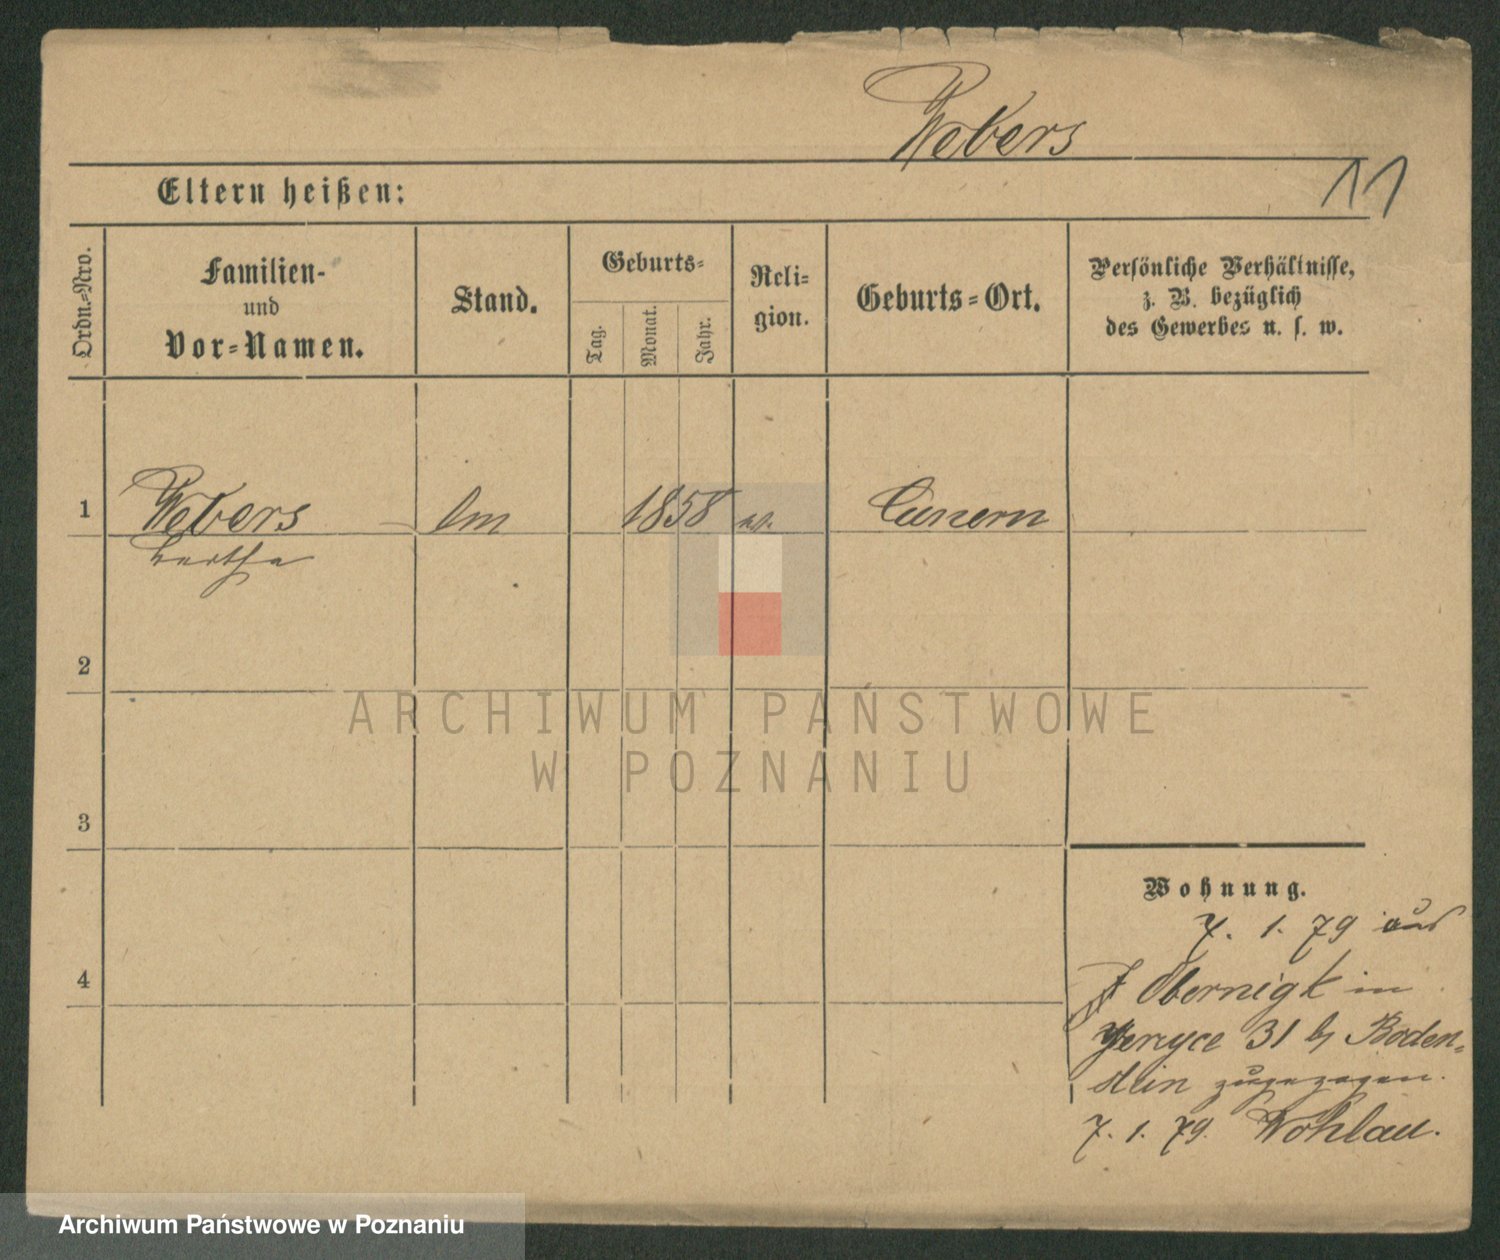 Webers
11
Eltern heißen:
Ordn.-Nro.
Familien-
und
Vor-Namen.
Stand.
Geburts-
Tag.
Monat.
Jahr.
Reli-
gion.
Geburts-Ort.
Persönliche Verhältnisse,
z. B. bezüglich
des Gewerbes u. s. w.
1
Webers
Bertha
1858
Cunern
2
3
4
Wohnung.
7. 1. 79 aus
Obernigk in
Jerzyce 31 b Boden-
stein zugezogen.
7. 1. 79. Wohlau.
ARCHIWUM PAŃSTWOWE
W POZNANIU
Archiwum Państwowe w Poznaniu